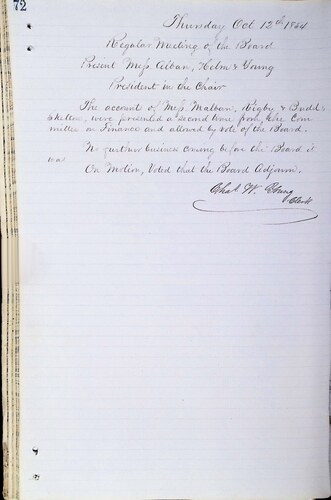 72
Thursday Oct 12th 1854
Regular Meeting of the Board
Present Mess. Alban, Holm & Young
President in the Chair
The account of Mess. Malbon, Rigby & Budd
were presented a second time from the Com
mittee on Finance and allowed by vote of the Board.
No further business coming before the Board it
was
On Motion, Voted that the Board Adjourn.
Chas W. Young
Clerk